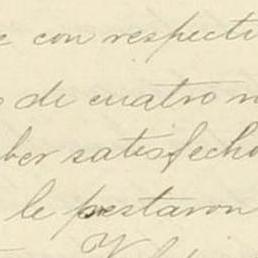 e con respecti
de cuatro
ber satisfecho
le prestaron